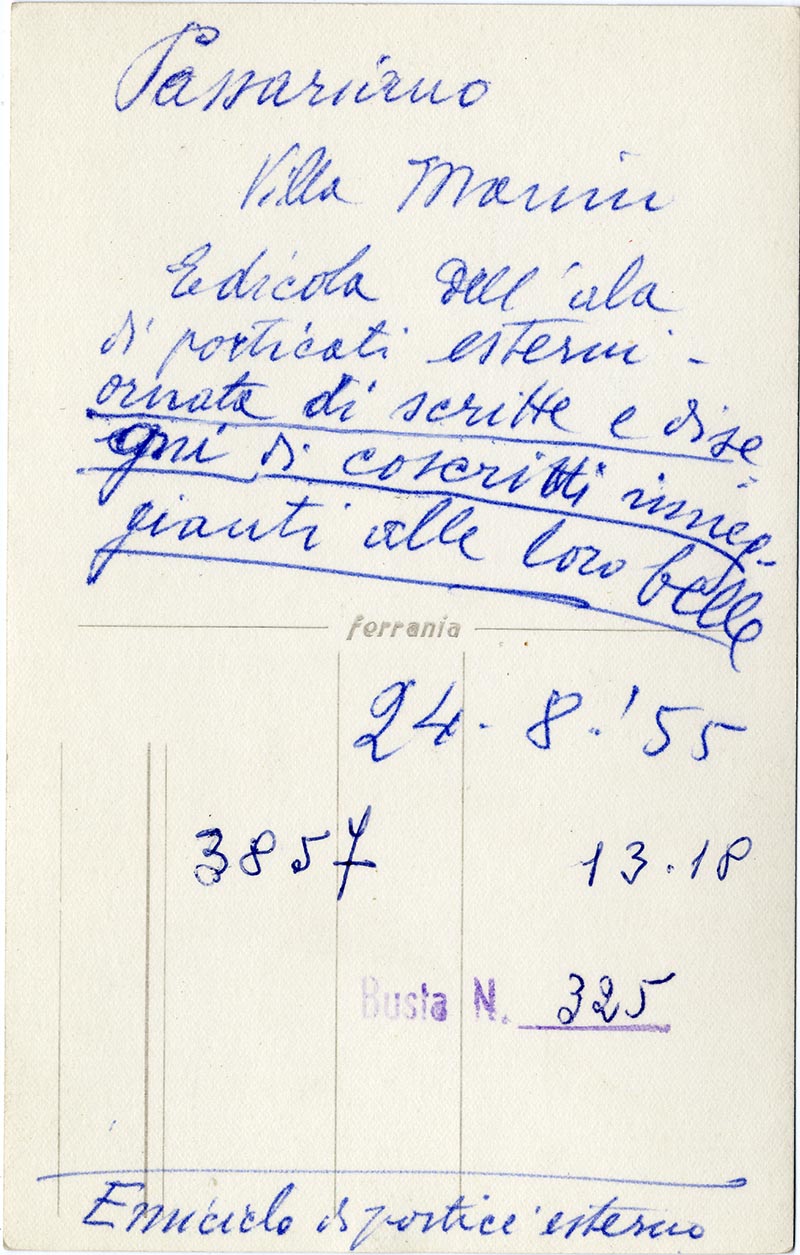 Passariano
Villa Manin
Edicola dell'ala
di porticati esterni -
ornata di scritte e dise
gni di coscritti inneg-
gianti alle loro belle
ferrania
24-8-'55
3857
13-18
Busta N. 325
Emiciclo di portice esterno